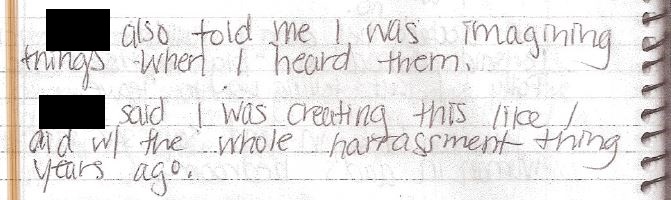 also told me I was imagining
things when I heard them.
said I was creating this like I
did w/ the whole harrassment thing
years ago.